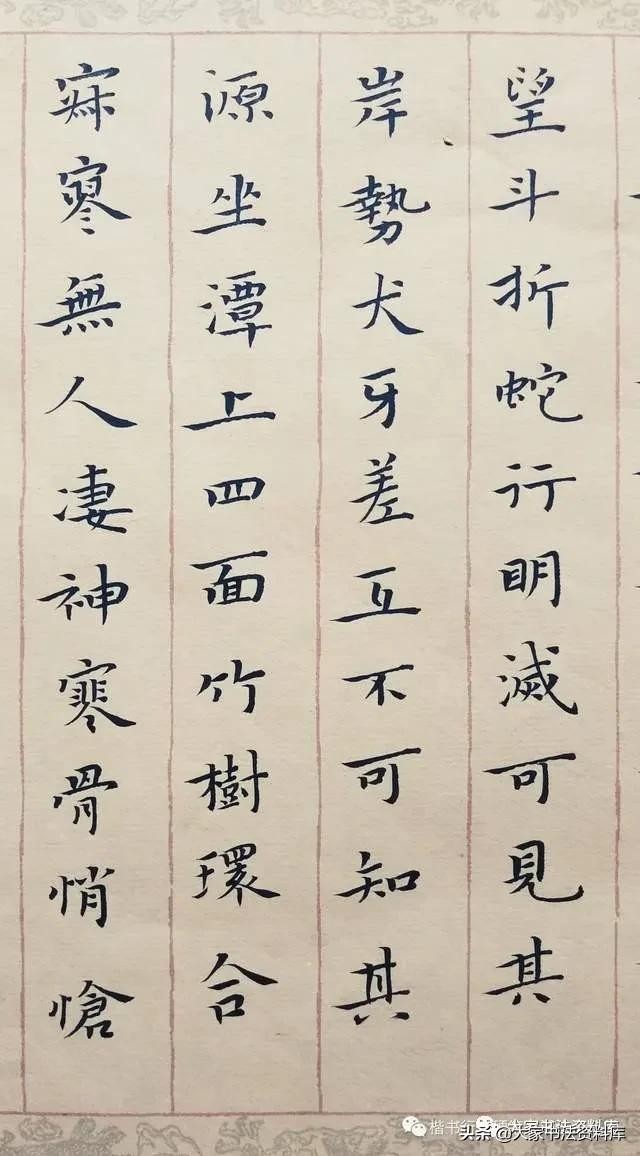 望斗折蛇行眀滅可見其
岸勢犬牙差互不可知其
源坐潭上四面竹樹環合
寂寥無人凄神寒骨悄愴
头条@大家书法资料库